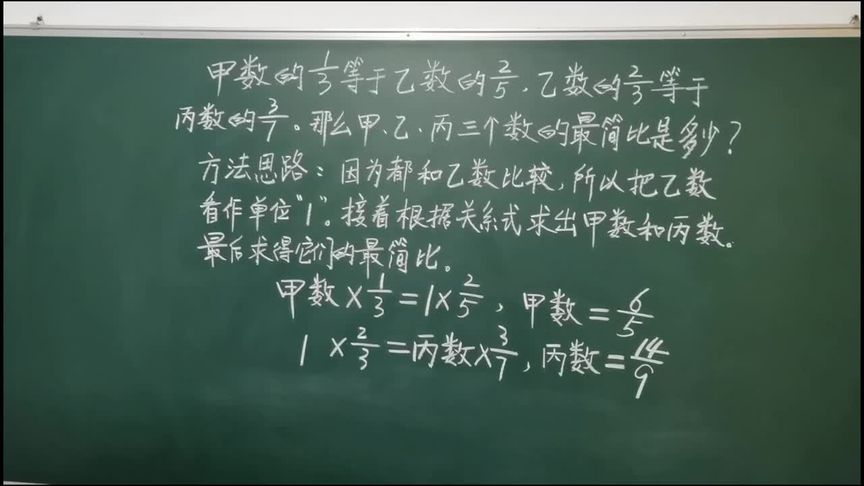 甲数的1/3等于乙数的2/5，乙数的2/3等于
丙数的3/7。那么甲、乙、丙三个数的最简比是多少？
方法思路：因为都和乙数比较，所以把乙数
看作单位“1”。接着根据关系式求出甲数和丙数。
最后求得它们的最简比。
甲数×1/3=1×2/5，甲数=6/5
1×2/3=丙数×3/7，丙数=14/9